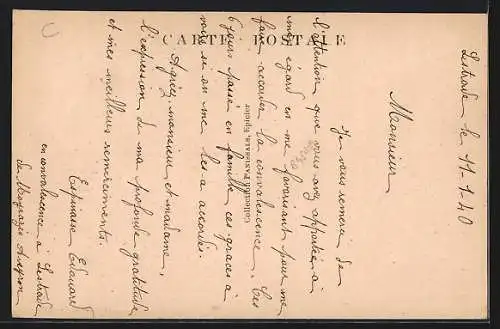 CARTE POSTALE
Collection PANASSALS, Épicier
Lestrade le 11-1-40
Monsieur
Je vous remercie de
l'attention que vous avez apportée à
mon égard en me favorisant pour me
faire accorder la convalescence. Ces
6 jours passé en famille ces graces à
vous si on me les a accordés.
Agréez, monsieur et madame,
l'expression de ma profonde gratitude
et mes meilleurs remerciements.
Espinasse Edouard
en convalescence à Lestrade
de Aveyron